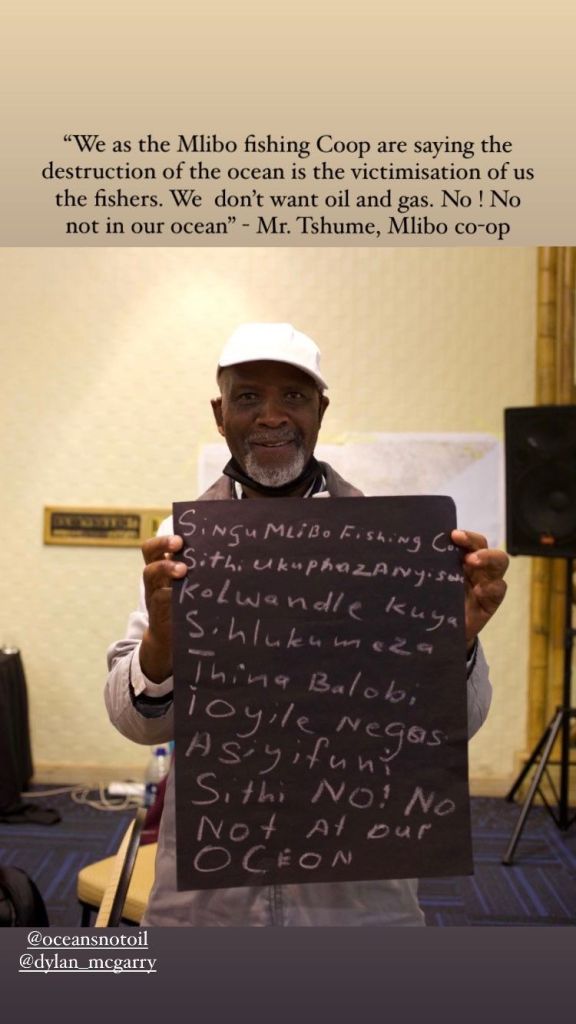 “We as the Mlibo fishing Coop are saying the
destruction of the ocean is the victimisation of us
the fishers. We don’t want oil and gas. No ! No
not in our ocean” - Mr. Tshume, Mlibo co-op
SiNGu MLiBo Fishing Co
Sithi ukuphazANyiswa
Kolwandle kuya
Sihlukumeza
Thina Balobi
ioyile Negas
Asiyifuni
Sithi NO! NO
Not At our
OCEON
@oceansnotoil
@dylan_mcgarry